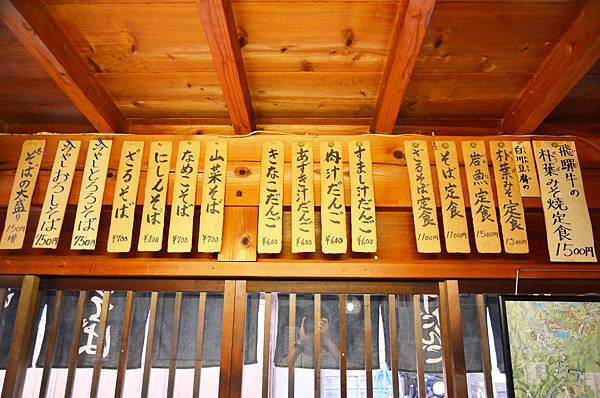 飛騨牛の
朴葉みそ焼定食
1500円
白川豆腐の
朴葉みそ定食
1300円
岩魚定食
1500円
そば定食
1100円
ざるそば定食
1100円
すまし汁だんご
¥600
肉汁だんご
¥600
あずき汁だんご
¥600
きなこだんご
¥600
山菜そば
¥700
なめこそば
¥700
にしんそば
¥800
ざるそば
¥700
冷やしとろろそば
750円
冷やしおろしそば
750円
そばの大盛り
150円増
そば
だんご